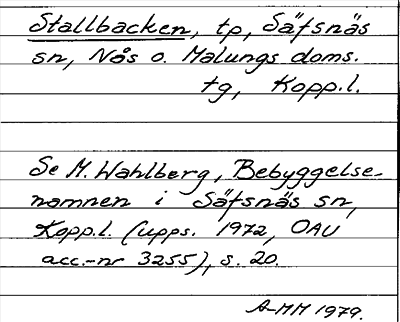 Stallbacken, tp, Säfsnäs
sn, Nås o. Malungs doms.
tg, Kopp.l.
Se M. Wahlberg, Bebyggelse-
namnen i Säfsnäs sn,
Kopp.l. (upps. 1972, OAU
acc.-nr 3255), s. 20.
A-MM 1979.